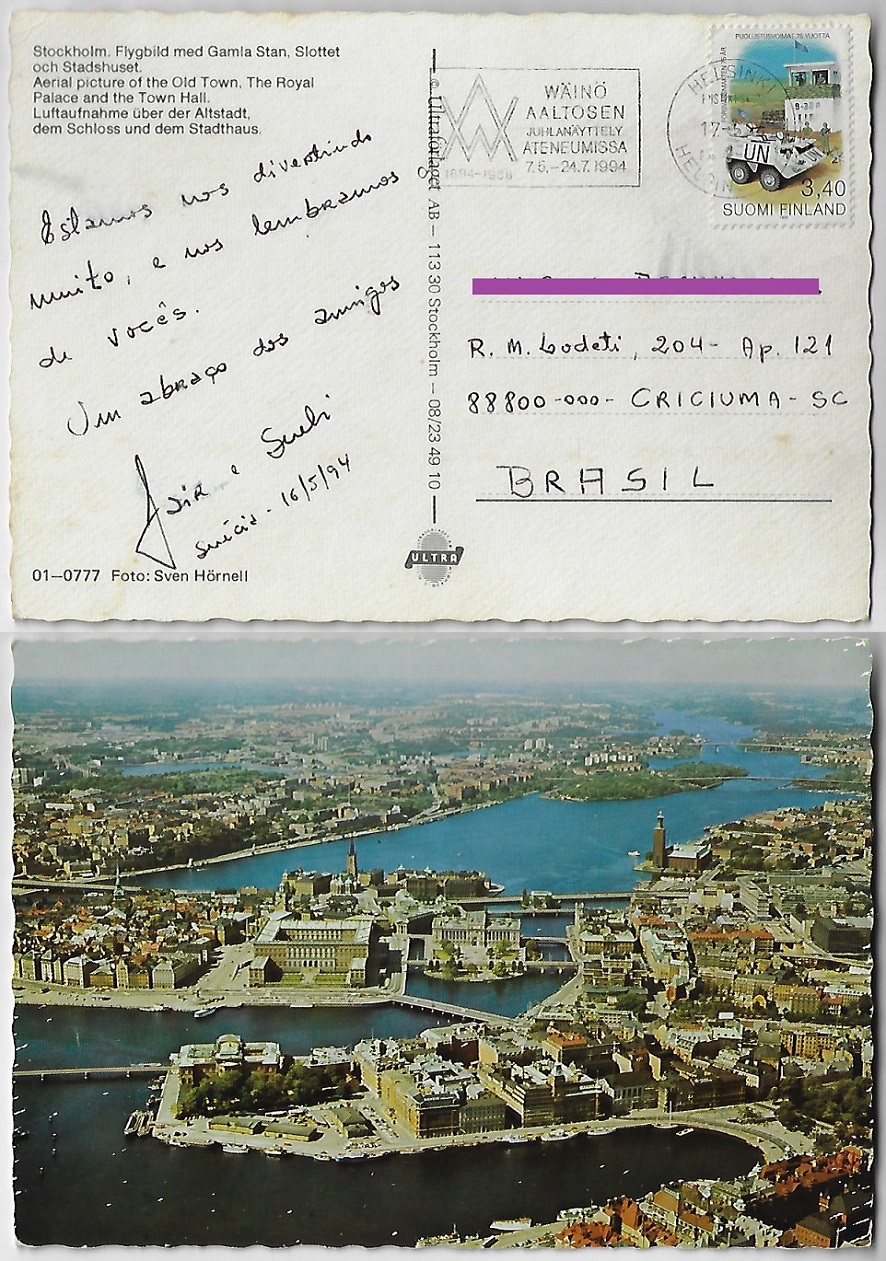 Stockholm. Flygbild med Gamla Stan, Slottet
och Stadshuset.
Aerial picture of the Old Town, The Royal
Palace and the Town Hall.
Luftaufnahme über der Altstadt,
dem Schloss und dem Stadthaus.
Estamos nos divertindo
muito, e nos lembramos
de vocês.
Um abraço dos amigos
Jair e Sueli
Suécia - 16/5/94
01—0777 Foto: Sven Hörnell
© Ultraförlaget AB — 113 30 Stockholm — 08/23 49 10
ULTRA
WÄINÖ
AALTOSEN
JUHLANÄYTTELY
ATENEUMISSA
7.5.-24.7.1994
1894-1966
HELSINKI
HELSIN
PUOLUSTUSVOIMAT 75 VUOTTA
UN
3,40
SUOMI FINLAND
R. M. Lodeti, 204- Ap. 121
88800-000- CRICIUMA - SC
BRASIL